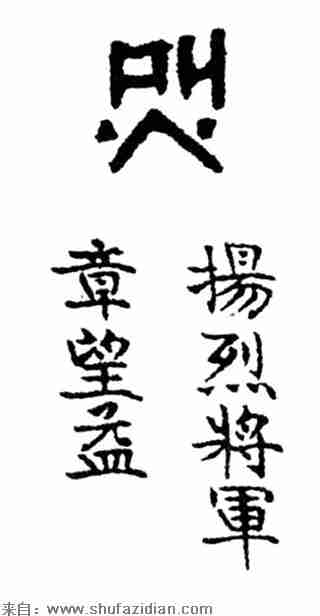 揚烈將軍
章望益
来自：www.shufazidian.com